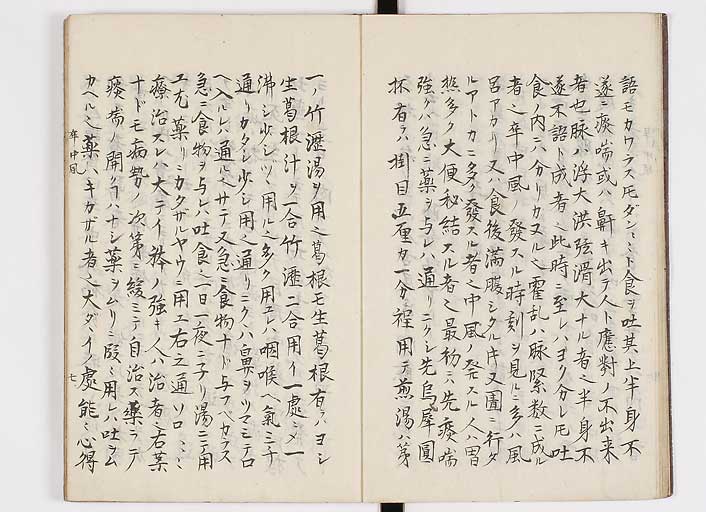 語モカワラス𪜈ダン〱ト食ヲ吐其上半身不
遂ニ痰喘或ハ鼾キ出テ人ト應對ノ不出来
者也脉ハ浮大洪弦滑大ナル者之半身不
遂不語ト成者之此時ニ至レハヨク分レ𪜈吐
食ノ内ニハ分リカヌル之霍乱ハ脉緊数ニ成ル
者之卒中風ノ發スル時刻ヲ見ルニ多ハ風
呂アカリ又ハ食後満腹シタル片又圊ニ行タ
ルアトカニ多ク發スル者之中風ノ發スル人ハ胃
熱多ク大便秘結スル者之最初ニ先痰喘
強クハ急ニ薬ヲ与レハ通リニクシ先烏犀圓
抔有ラハ掛目五厘カ一分程用テ煎湯ハ第
一ノ竹瀝湯ヲ用之葛根モ生葛根有ラハヨシ
生葛根汁ヲ一合竹瀝二合用イ一處ニメ一
沸シ少シツヽ用ル之多ク用エレハ咽喉ヘ氣ミチ
通リカタシ少シ用之通リニクハ鼻ヲツマミテロ
ヘ入ルレハ通ル之サテ又急ニ食物ナド与フヘカラス
急ニ食物ヲ与レハ吐食之一日一夜ニ子リ湯ニテ用
エ尤薬リニカクザルヤウニ用エ右之通ソロ〱ニ
療治スレハ大テイ拵ノ強キ人ハ治者之右薬
ナドモ病勢ノ次第ニ緩ミテ自治ス薬ラテ
痰喘ノ開クラハナシ薬ヲムリニ咽ミ用レハ吐ヲム
カヘル之薬ハキカザル者之大ダイノ處能〻心得
卒中風
七